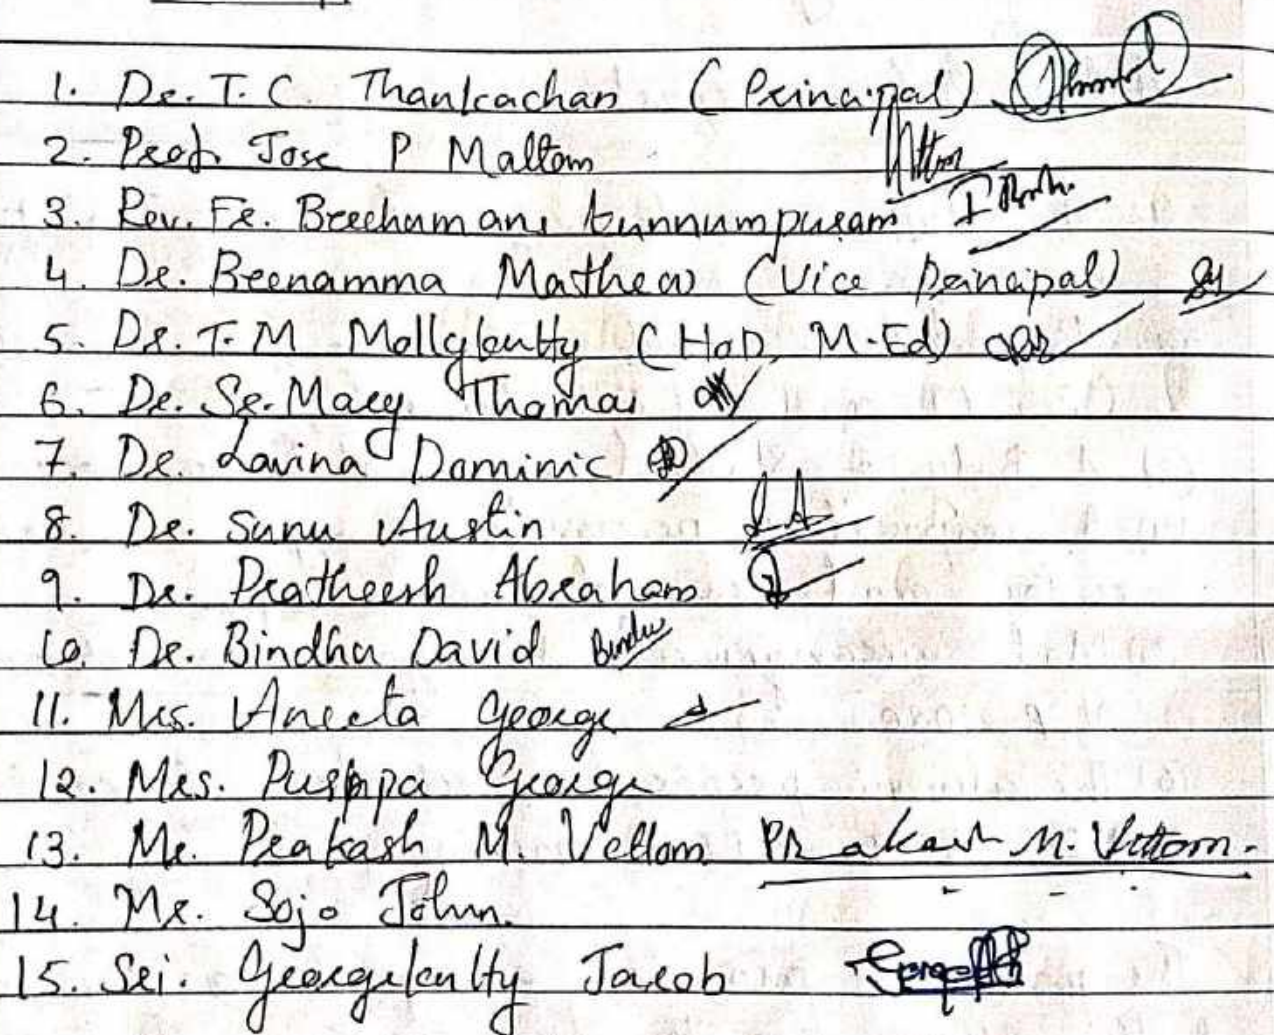 1. Dr. T. C. Thankachan (Principal)
2. Prof. Jose P Mattom
3. Rev. Fr. Berchumans kunnumpuram
4. Dr. Beenamma Mathew (Vice Principal)
5. Dr. T. M Mollykutty (HoD, M.Ed)
6. Dr. Sr. Mary Thomas
7. Dr. Lavina Dominic
8. Dr. Sunu Austin
9. Dr. Pratheesh Abraham
10. Dr. Bindhu David Bindu
11. Mrs. Aneeta George
12. Mrs. Pushpa George
13. Mr. Prakash M. Vettom Prakash M. Vettom.
14. Mr. Sojo John.
15. Sri. Georgekutty Jacob